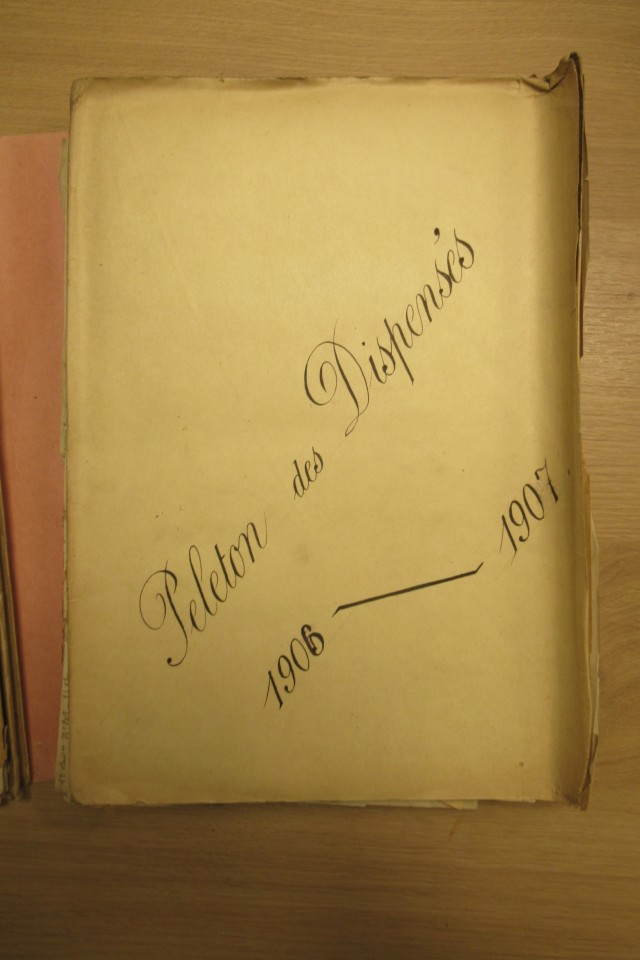 Peleton des Dispensés
1906 — 1907